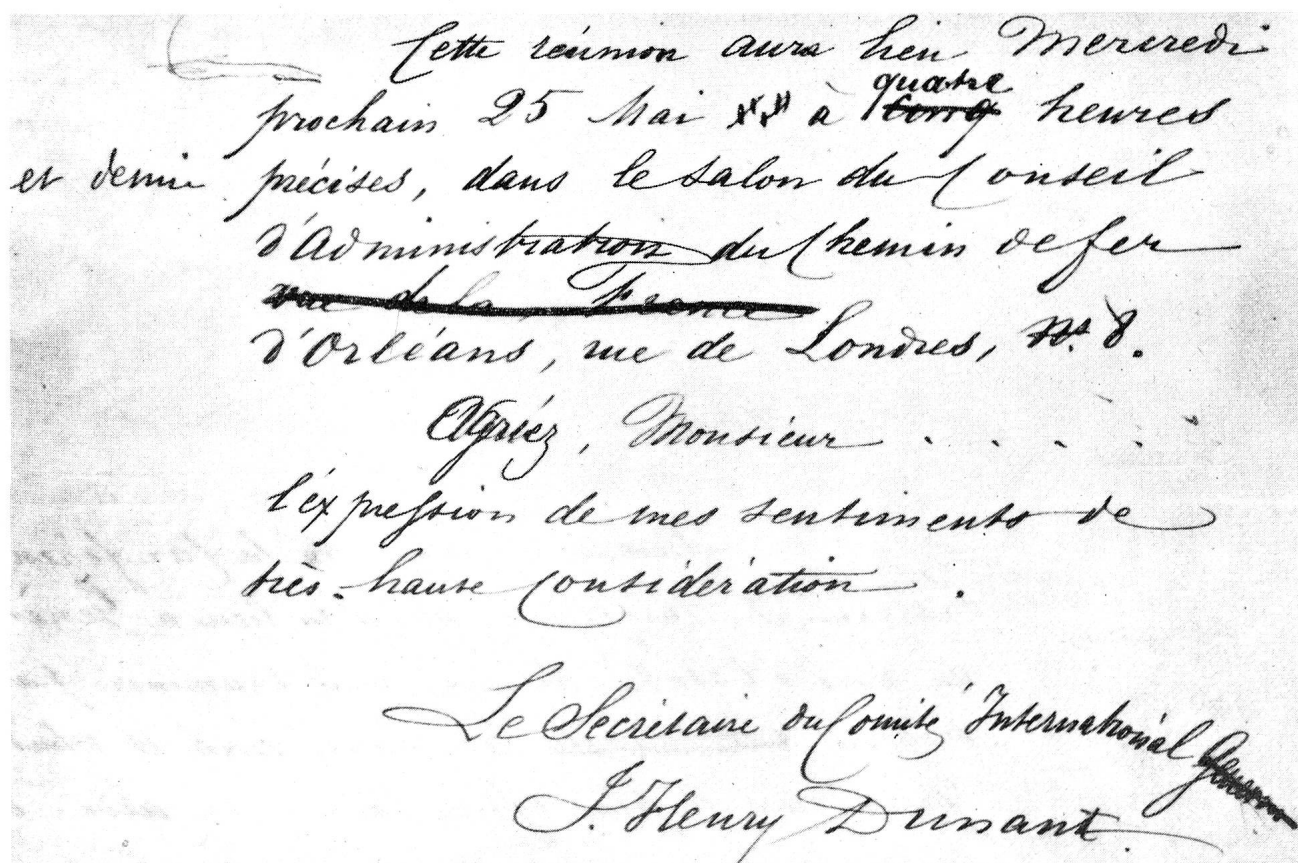 Cette réunion aura lieu Mercredi
prochain 25 Mai à quatre cinq heures
et demie précises, dans le salon du Conseil
d'Administration du Chemin de fer
rue de la France
d'Orléans, rue de Londres, nº 8.
Agréez, Monsieur . . . . .
l'expression de mes sentiments de
très-haute considération.
Le Secrétaire du Comité International
J. Henry Dunant